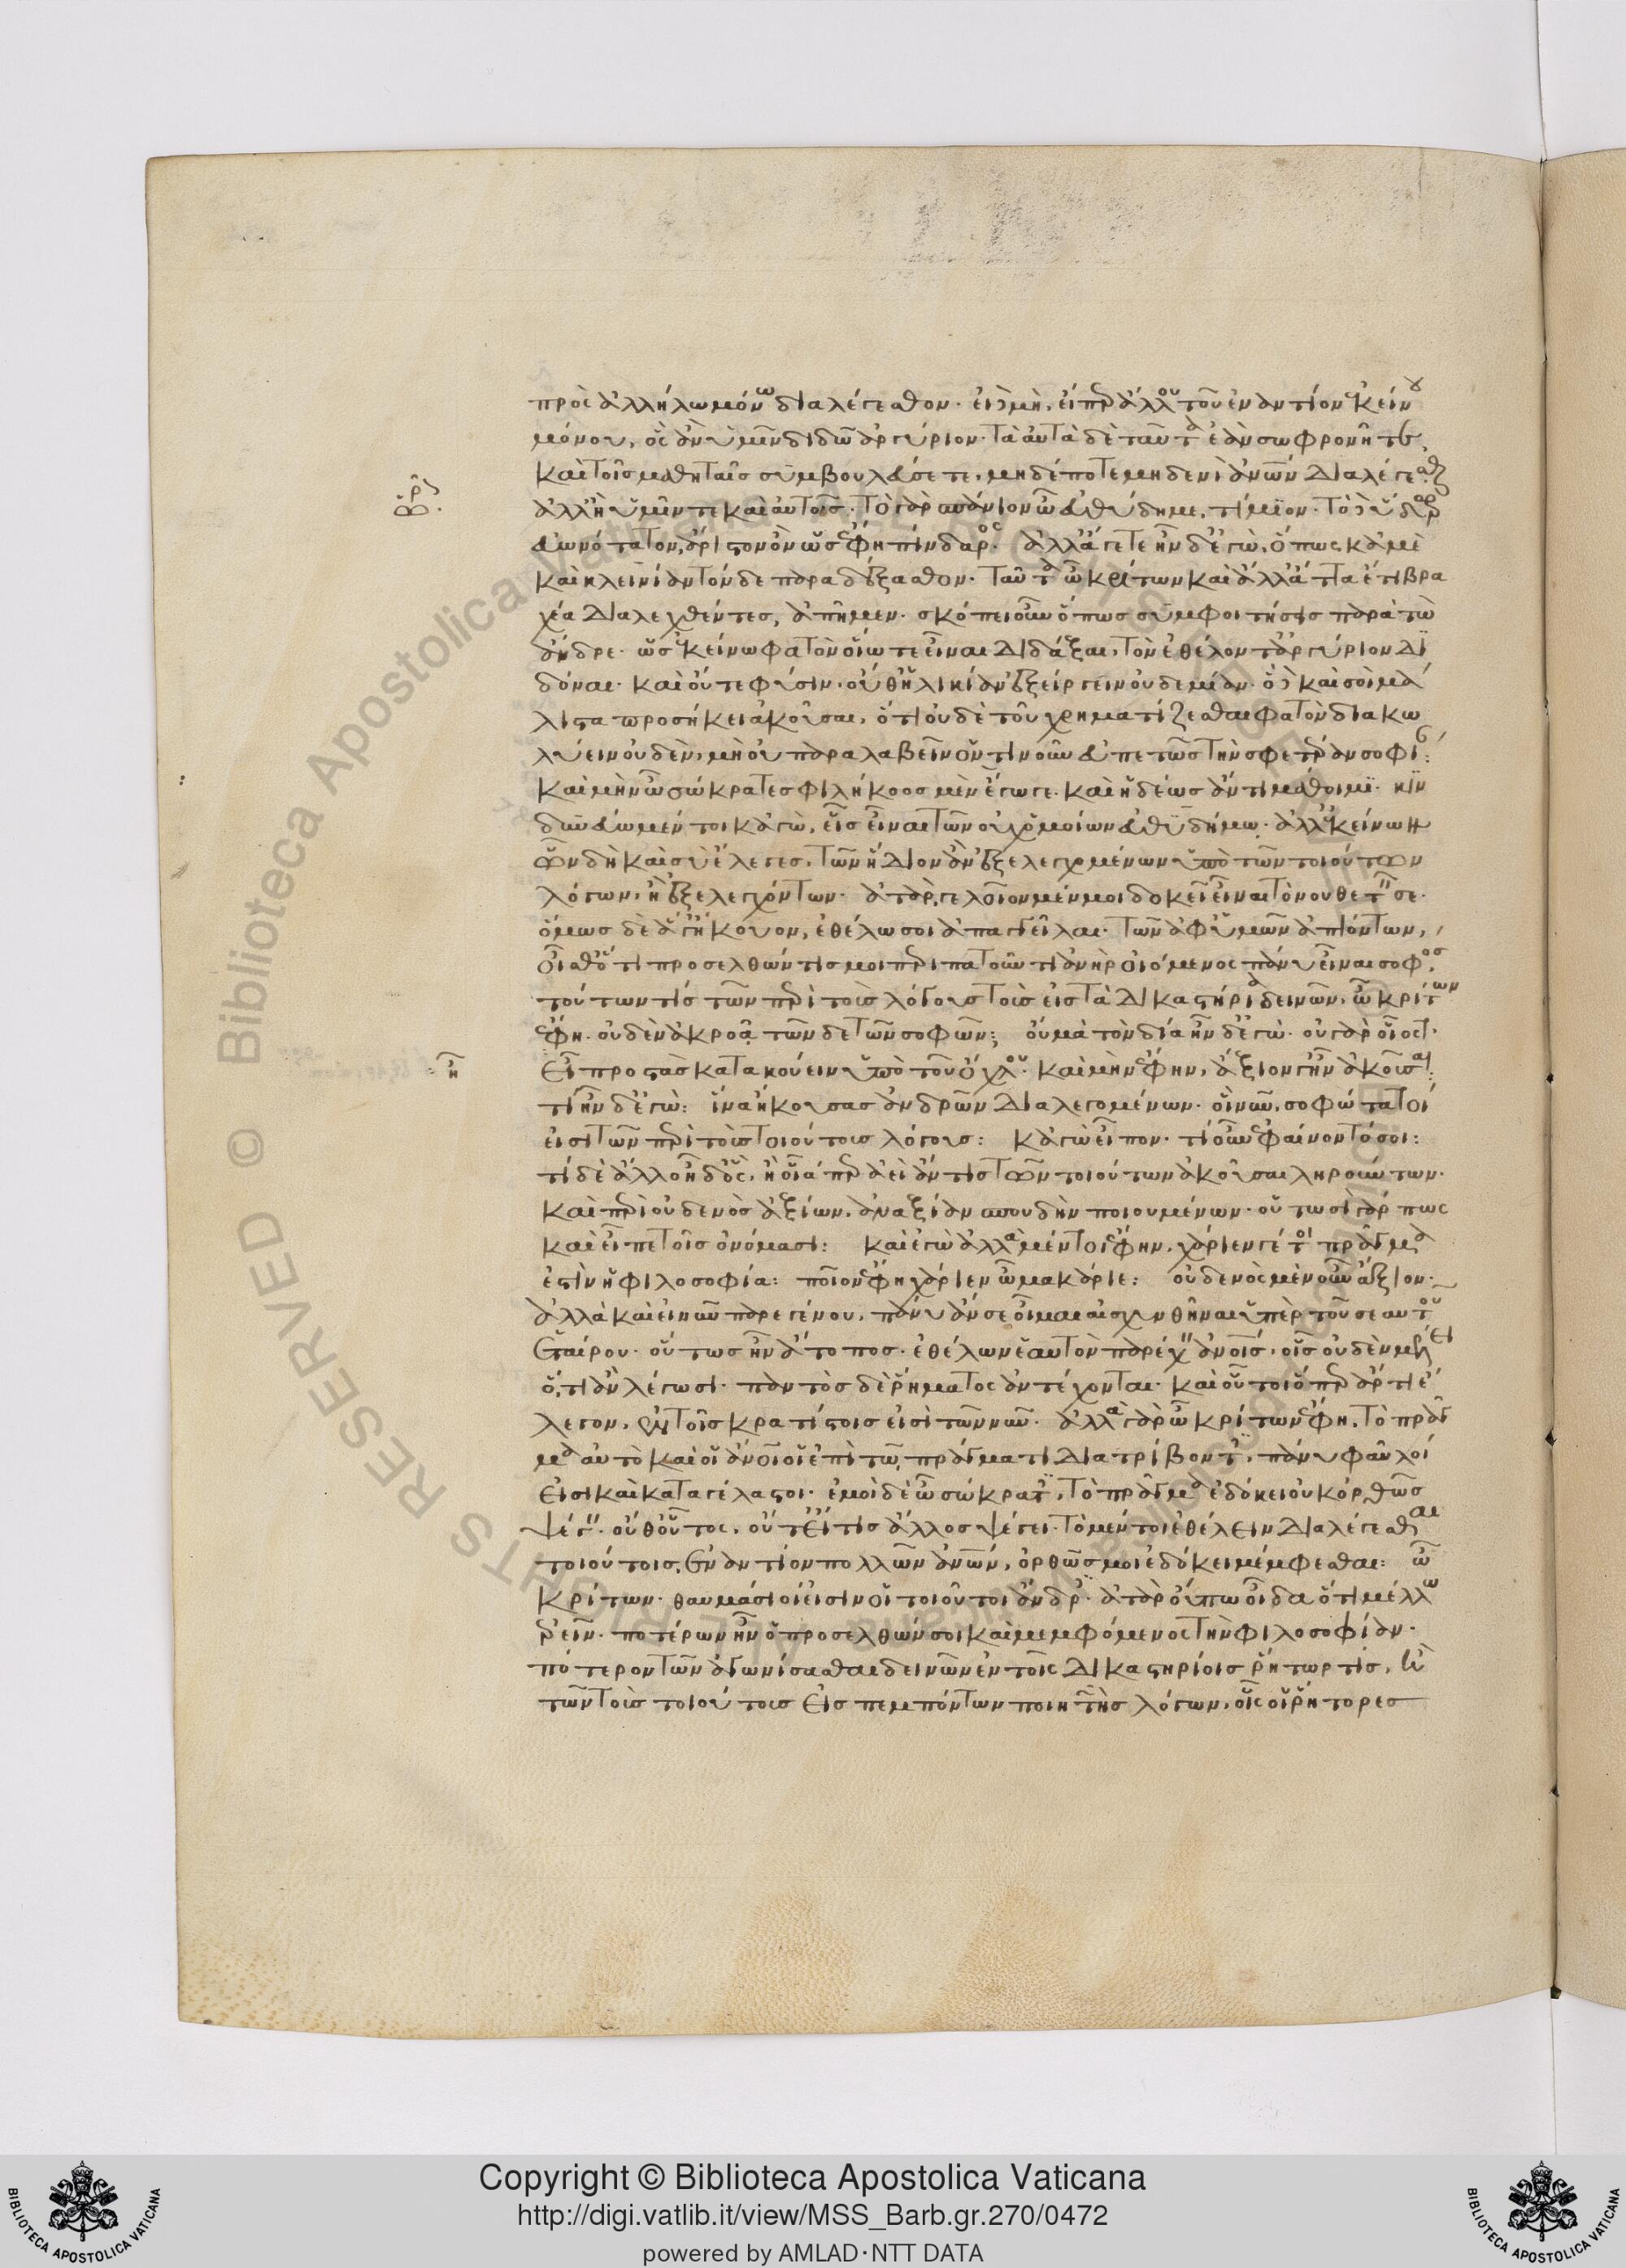 πρὸς ἀλλήλω μόνω διαλέγεσθον· εἰ δὲ μὴ, εἴπερ ἄλλου του ἐναντίον, ἐκείνου
μόνου, ὃς ἂν ὑμῖν διδῶ ἀργύριον· τὰ αὐτὰ δὲ ταῦτα ἐὰν σωφρονῆτε,
καὶ τοῖς μαθηταῖς συμβουλεύσετε, μηδέποτε μηδενὶ ἀνων διαλέγεσθαι
ἀλλ' ἢ ὑμῖν τε καὶ αὐτοῖς· τὸ γὰρ σπάνιον ὦ εὐθύδημε, τίμιον· τὸ δὲ ὕδωρ
εὐωνότατον, ἄριστον ὂν ὡς ἔφη πίνδαρος· ἀλλ' ἄγετε ἦν δ' ἐγὼ, ὅπως κἀμὲ
καὶ κλεινίαν τόνδε παραδέξασθον· ταῦτα ὦ κρίτων καὶ ἄλλα ἄττα ἔτι βρα
χέα διαλεχθέντες, ἀπῆμεν· σκόπει οὖν ὅπως συμφοιτήσεις παρὰ τὼ
ἄνδρε· ὡς ἐκείνω φατὸν οἵω τε εἶναι διδάξαι, τὸν ἐθέλοντ' ἀργύριον δι
δόναι· καὶ οὔτε φύσιν, οὔθ' ἡλικίαν ἐξείργειν οὐδεμίαν· ὃ δὲ καὶ σοὶ μά
λιστα προσήκει ἀκοῦσαι, ὅτι οὐδὲ τοῦ χρηματίζεσθαι φατὸν διακω
λύειν οὐδὲν, μὴ οὐ παραλαβεῖν ὁντινοῦν εὐπετῶς τὴν σφετέραν σοφίαν:
καὶ μὴν ὦ σώκρατες φιλήκοος μὲν ἔγωγε. καὶ ἡδέως ἄν τι μανθάνοιμι· κιν
δυνεύω μέντοι κἀγὼ, εἷς εἶναι τῶν οὐχ ὁμοίων εὐθυδήμω· ἀλλ' ἐκείνων
ὧν δὴ καὶ σὺ ἔλεγες, τῶν ἥδιον ἂν ἐξελεγχομένων ὑπὸ τῶν τοιούτων
λόγων, ἢ ἐξελεγχόντων· ἀτὰρ, γελοῖον μέν μοι δοκεῖ εἶναι τὸ νουθετεῖν σε·
ὅμως δὲ ἅ γ' ἤκουον, ἐθέλω σοι ἀπαγγεῖλαι· τῶν ἀφ' ὑμῶν ἀπιόντων,
οἶσθ' ὅτι προσελθών τίς μοι περιπατοῦντι ἀνὴρ οἰόμενος πάνυ εἶναι σοφὸς,
τούτων τίς τῶν περὶ τοὺς λόγους τοὺς εἰς τὰ δικαστήρια δεινῶν, ὦ κρίτων
ἔφη· οὐδὲν ἀκροᾶ τῶνδε τῶν σοφῶν; οὐ μὰ τὸν δία ἦν δ' ἐγώ· οὐ γὰρ οἷός τ'
εἶ προστὰς κατακούειν ὑπὸ τοῦ ὄχλου· καὶ μὴν ἔφην, ἄξιόν γ' ἦν ἀκοῦσαι:
τί ἦν δ' ἐγώ: ἵνα ἤκουσας ἀνδρῶν διαλεγομένων· οἳ νῦν, σοφώτατοί
εἰσι τῶν περὶ τοὺς τοιούτους λόγους: κἀγὼ εἶπον· τί οὖν ἐφαίνοντό σοι:
τί δὲ ἄλλο ἦ δ' ὃς, ἢ οἷάπερ ἀεὶ ἄν τις τῶν τοιούτων ἀκοῦσαι ληρούντων·
καὶ περὶ οὐδενὸς ἀξίων, ἀναξίαν σπουδὴν ποιουμένων· οὑτωσὶ γάρ πως
καὶ εἶπε τοῖς ὀνόμασι: καὶ ἐγὼ ἀλλὰ μέντοι ἔφην, χάριέν γέ τοι πρᾶγμα
ἐστὶν ἡ φιλοσοφία: ποῖον ἔφη χάριεν ὦ μακάριε: οὐδενὸς μὲν οὖν ἄξιον·
ἀλλὰ καὶ εἰ νῦν παρεγένου, πάνυ ἄν σε οἶμαι αἰσχυνθῆναι ὑπὲρ τοῦ σεαυτοῦ
ἑταίρου· οὕτως ἦν ἄτοπος. ἐθέλων ἑαυτὸν παρέχειν ἀνοις, οἷς οὐδὲν μέλει
ὅ,τι ἂν λέγωσι· παντὸς δὲ ῥήματος ἀντέχονται· καὶ οὗτοι ὅπερ ἄρτι ἔ
λεγον, ἐν τοῖς κρατίστοις εἰσὶ τῶν νῦν· ἀλλὰ γὰρ ὦ κρίτων ἔφη, τὸ πρᾶγ
μα αὐτὸ καὶ οἱ ἄνοι οἱ ἐπὶ τῶ πράγματι διατρίβοντες, πάνυ φαῦλοί
εἰσι καὶ καταγέλαστοι· ἐμοὶ δὲ ὦ σώκρατες, τὸ πρᾶγμα ἐδόκει οὐκ ὀρθῶς
ψέγειν· οὔθ' οὗτος, οὔτ' εἴ τις ἄλλος ψέγει· τὸ μέντοι ἐθέλειν διαλέγεσθαι
τοιούτοις, ἐναντίον πολλῶν ἀνων, ὀρθῶς μοι ἐδόκει μέμφεσθαι: ὦ
κρίτων· θαυμάσιοί εἰσιν οἱ τοιοῦτοι ἄνδρες· ἀτὰρ οὔπω οἶδα ὅ τι μέλλω
ἐρεῖν· ποτέρων ἦν ὁ προσελθών σοι καὶ μεμφόμενος τὴν φιλοσοφίαν·
πότερον τῶν ἀγωνίσασθαι δεινῶν ἐν τοῖς δικαστηρίοις ῥήτωρ τὶς, ἢ
τῶν τοὺς τοιούτους εἰσπεμπόντων ποιητὴς λόγων, οἷς οἱ ῥήτορες
Copyright © Biblioteca Apostolica Vaticana
http://digi.vatlib.it/view/MSS_Barb.gr.270/0472
powered by AMLAD·NTT DATA
BIBLIOTECA APOSTOLICA VATICANA
BIBLIOTECA APOSTOLICA VATICANA